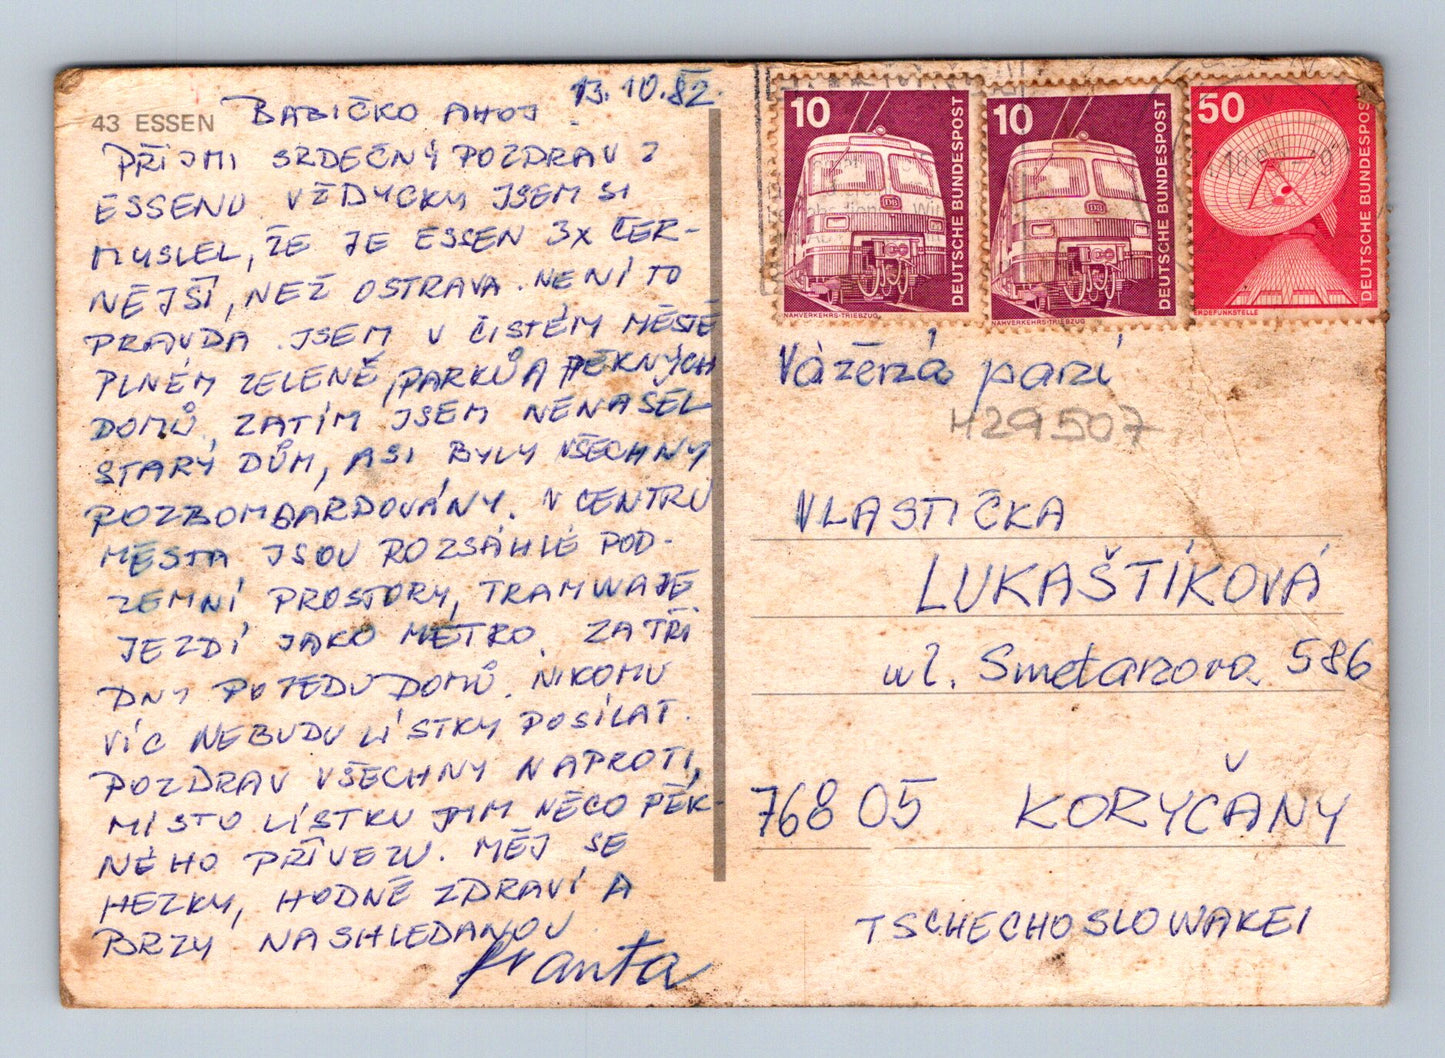 43 ESSEN
BABIČKO AHOJ! 13.10.82.
PŘIJMI SRDEČNÝ POZDRAV Z
ESSENU. VŽDYCKY JSEM SI
MYSLEL, ŽE JE ESSEN 3X ČER-
NĚJŠÍ, NEŽ OSTRAVA. NENÍ TO
PRAVDA. JSEM V ČISTÉM MĚSTĚ
PLNÉM ZELENĚ, PARKŮ A PĚKNÝCH
DOMŮ. ZATÍM JSEM NENAŠEL
STARÝ DŮM, ASI BYLY VŠECHNY
ROZBOMBARDOVÁNY. V CENTRU
MĚSTA JSOU ROZSÁHLÉ POD-
ZEMNÍ PROSTORY, TRAMWAJE
JEZDÍ JAKO METRO. ZA TŘI
DNY POJEDU DOMŮ. NIKOMU
VÍC NEBUDU LÍSTKY POSÍLAT.
POZDRAV VŠECHNY NAPROTI,
MÍSTO LÍSTKU JIM NĚCO PĚK-
NÉHO PŘIVEZU. MĚJ SE
HEZKY, HODNĚ ZDRAVÍ A
BRZY NASHLEDANOU.
Franta
10
DEUTSCHE BUNDESPOST
NAHVERKEHRS-TRIEBZUG
10
DEUTSCHE BUNDESPOST
NAHVERKEHRS-TRIEBZUG
50
DEUTSCHE BUNDESPOST
ERDEFUNKSTELLE
Vážená paní
H29507
VLASTIČKA
LUKAŠTÍKOVÁ
ul. Smetanova 586
768 05 KORYČANY
TSCHECHOSLOWAKEI